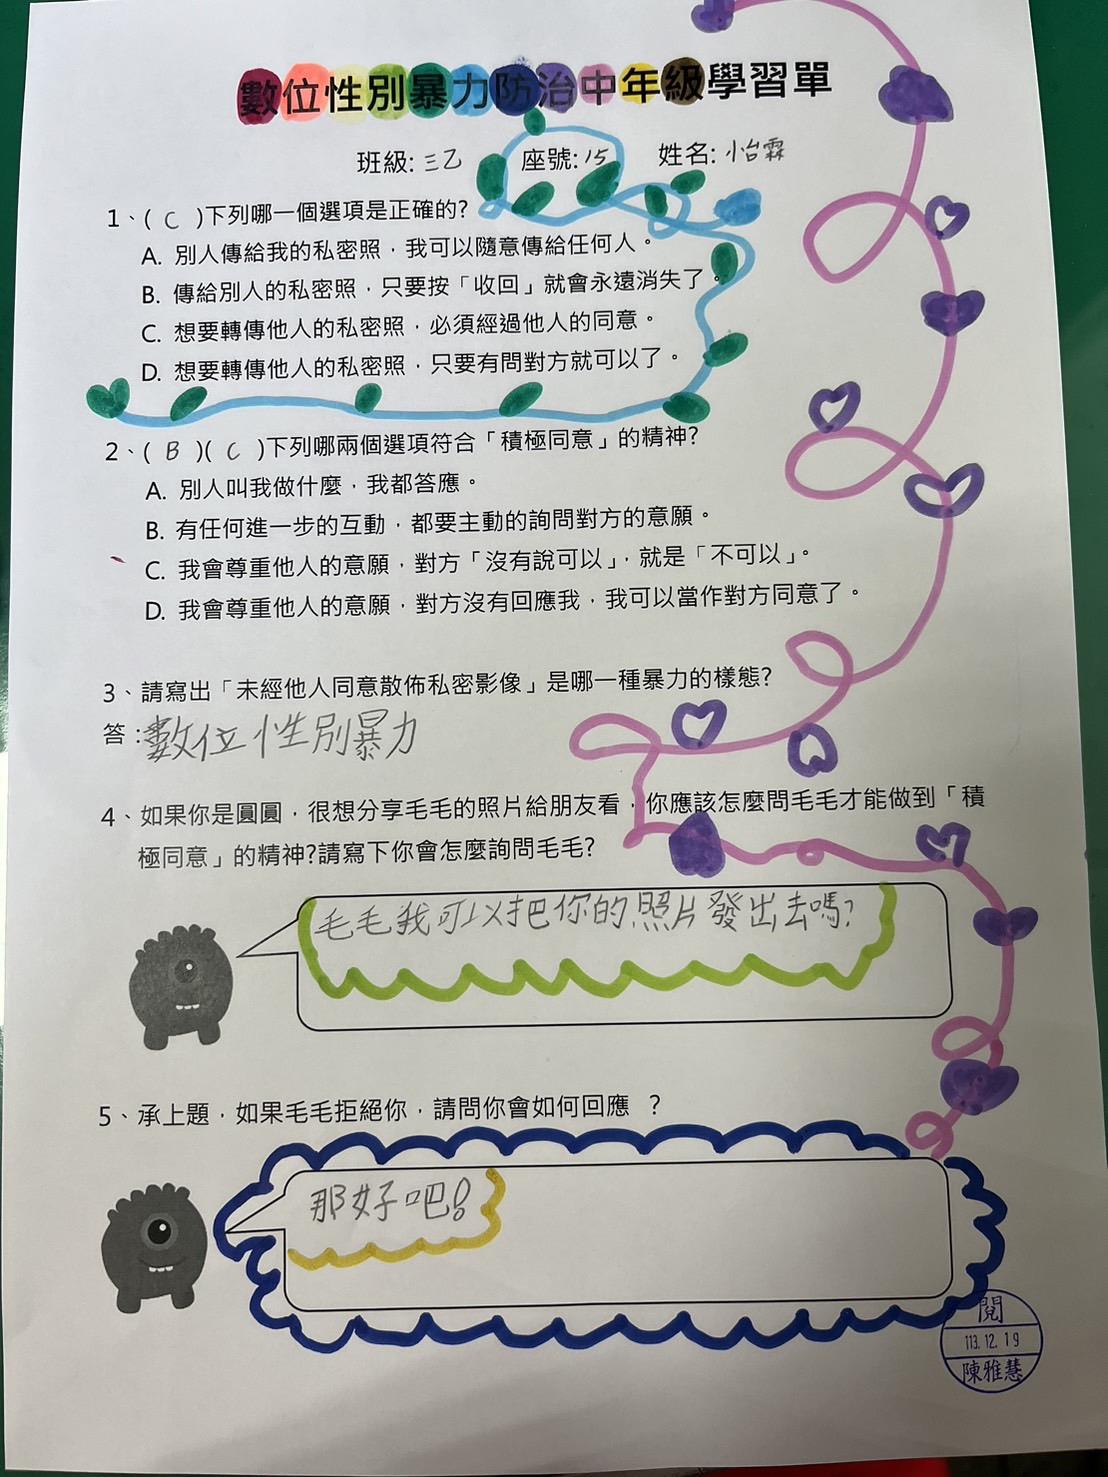 數位性別暴力防治中年級學習單
班級: 三乙 座號: 15 姓名: 怡霖
1、( C )下列哪一個選項是正確的?
A. 別人傳給我的私密照，我可以隨意傳給任何人。
B. 傳給別人的私密照，只要按「收回」就會永遠消失了。
C. 想要轉傳他人的私密照，必須經過他人的同意。
D. 想要轉傳他人的私密照，只要有問對方就可以了。
2、( B )( C )下列哪兩個選項符合「積極同意」的精神?
A. 別人叫我做什麼，我都答應。
B. 有任何進一步的互動，都要主動的詢問對方的意願。
C. 我會尊重他人的意願，對方「沒有說可以」，就是「不可以」。
D. 我會尊重他人的意願，對方沒有回應我，我可以當作對方同意了。
3、請寫出「未經他人同意散佈私密影像」是哪一種暴力的樣態?
答：數位性別暴力
4、如果你是圓圓，很想分享毛毛的照片給朋友看，你應該怎麼問毛毛才能做到「積
極同意」的精神?請寫下你會怎麼詢問毛毛?
毛毛我可以把你的照片發出去嗎?
5、承上題，如果毛毛拒絕你，請問你會如何回應 ?
那好吧!
閱
113.12.19
陳雅慧